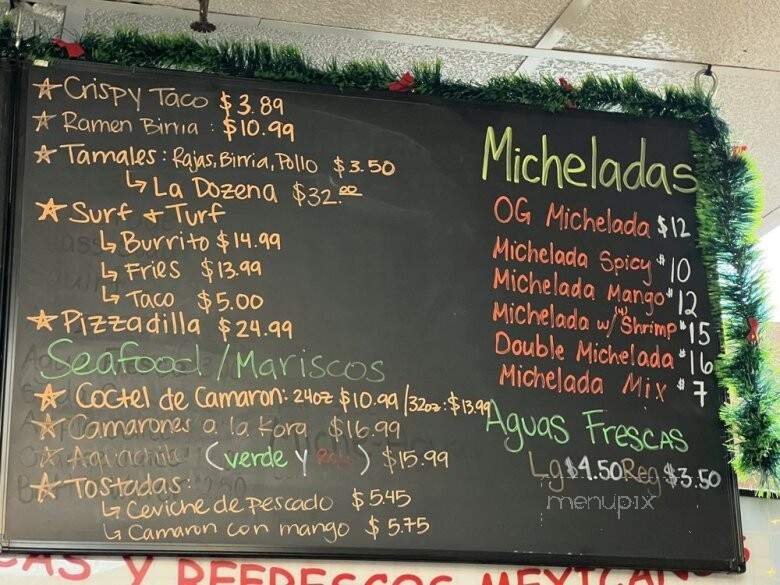 ☆ Crispy Taco $3.89
☆ Ramen Birria : $10.99
☆ Tamales: Rajas, Birria, Pollo $3.50
↳ La Dozena $32.00
☆ Surf & Turf
↳ Burrito $14.99
↳ Fries $13.99
↳ Taco $5.00
☆ Pizzadilla $24.99
Seafood/Mariscos
☆ Coctel de Camaron: 24oz $10.99/32oz: $13.99
☆ Camarones a la Kora $16.99
☆ Aguachile (verde y Rojo) $15.99
☆ Tostadas:
↳ Ceviche de pescado $5.45
↳ Camaron con mango $5.75
Micheladas
OG Michelada $12
Michelada Spicy $10
Michelada Mango $12
Michelada w/ (4) Shrimp $15
Double Michelada $16
Michelada Mix $7
Aguas Frescas
Lg $4.50 Reg $3.50
menupix
Y REFRESCOS MEXICA